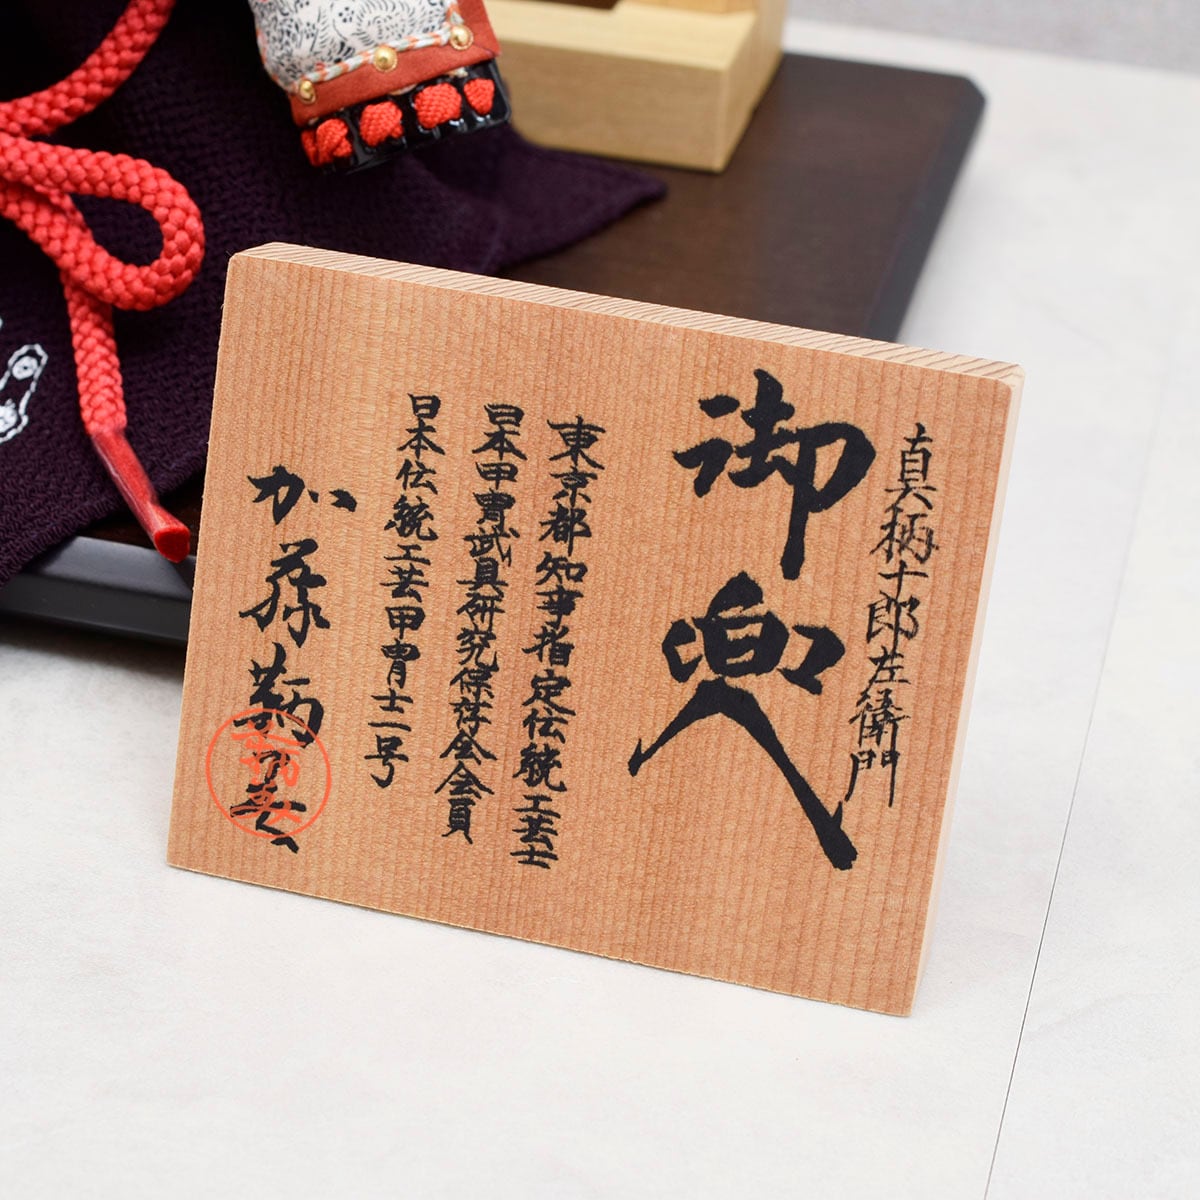 真柄十郎左衛門
御兜
東京都知事指定伝統工芸士
日本甲冑武具研究保存会会員
日本伝統工芸甲冑士一号
加藤鞆美